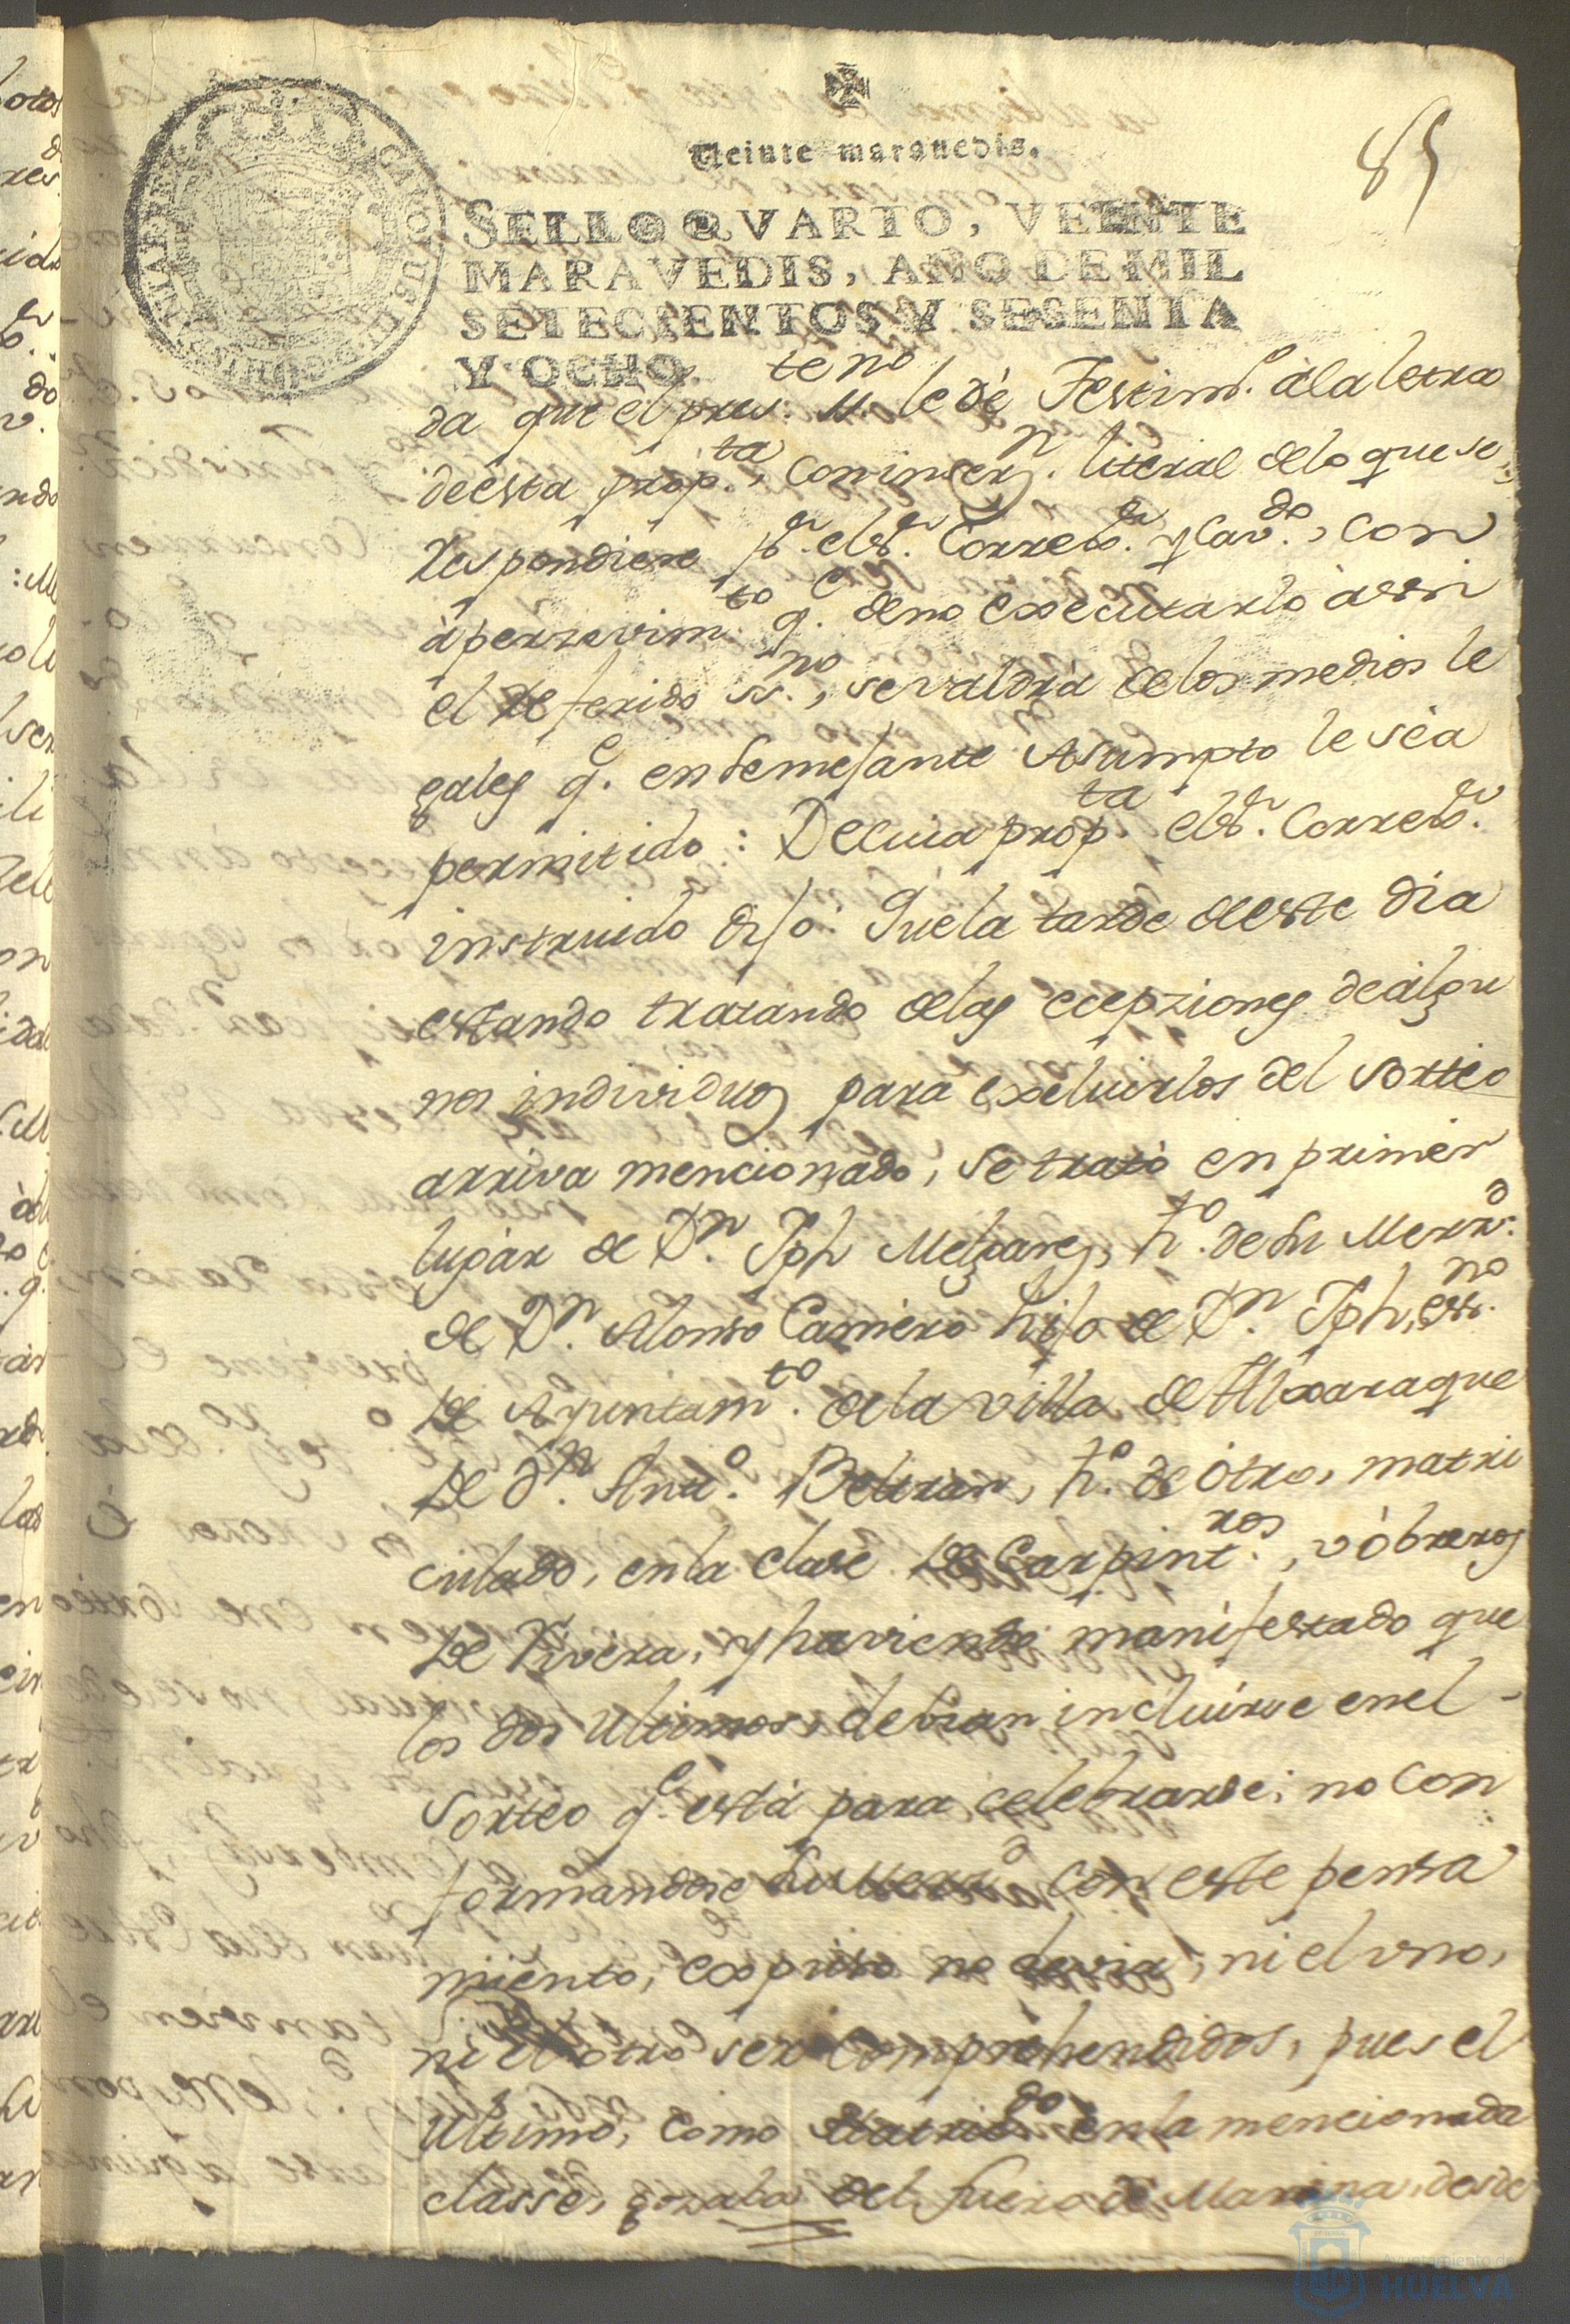 85
Veinte maravedis.
SELLO QVARTO, VEINTE
MARAVEDIS, AÑO DE MIL
SETECIENTOS Y SESENTA
Y OCHO.
da que el pres.te ss.no le dè Testim.o àla letra
deèsta prop.ta, con inserz.n literal delo que se
respondiere p.r el S.r Correx.r y Cav.do, con
àperzevim.to q.e deno executarlo àssi
el referido ss.no, sevaldrà delos medios le
gales q.e en semejante Asumpto le sèa
permitido: De cuia prop.ta el S.r Correx.r
instruido dijo: Que la tarde de este dia
estando tratando delas ecepziones de àlgu
nos individuos para excluirlos del sorteo
arriva mencionado, se tratò en primèr
lugàr de D.n Jph Melgarejo, h.o de su Merz.d
de D.n Alonso Carriero hijo de D.n Jph, ess.no
de Ayuntam.to dela villa de Alxaraque
de D.n Ant.o Beltran, h.o de òtro, matri
culado, en la clase de Carpint.ros, v òbreros
de Rivèra, y haviendo manifestado que
los dos ultimos, debian incluirse en el
sorteo q.e està para celebrarse; no con
formandose su Merz.d con este pensa
miento, expuso no devia, ni el vno,
ni el otro ser comprehendidos, pues el
ultimo, como Matric.do en la mencionada
classe, gozaba del fuero de Marina, desde
Ayuntamiento de
HUELVA